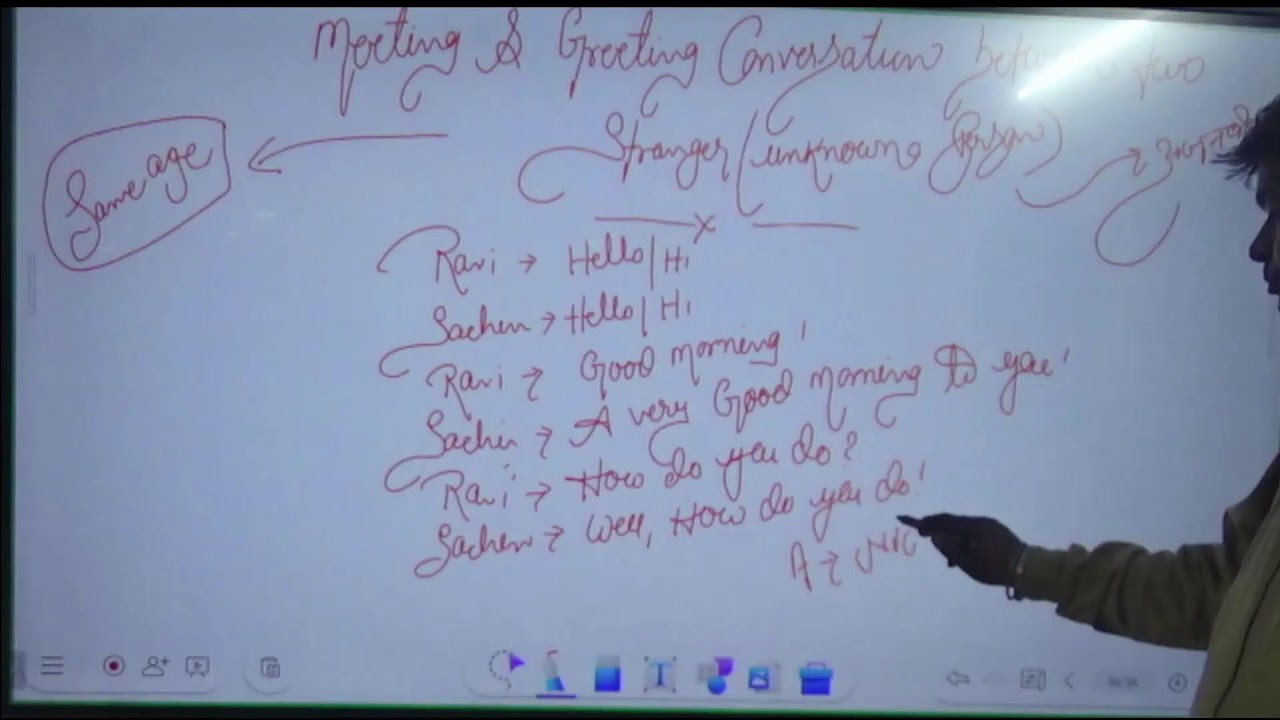 Meeting & Greeting Conversation between two
Stranger (unknown Person)
Same age
Ravi → Hello/Hi
Sachin → Hello/Hi
Ravi → Good morning!
Sachin → A very Good morning to you!
Ravi → How do you do?
Sachin → Well, How do you do!
A →
T